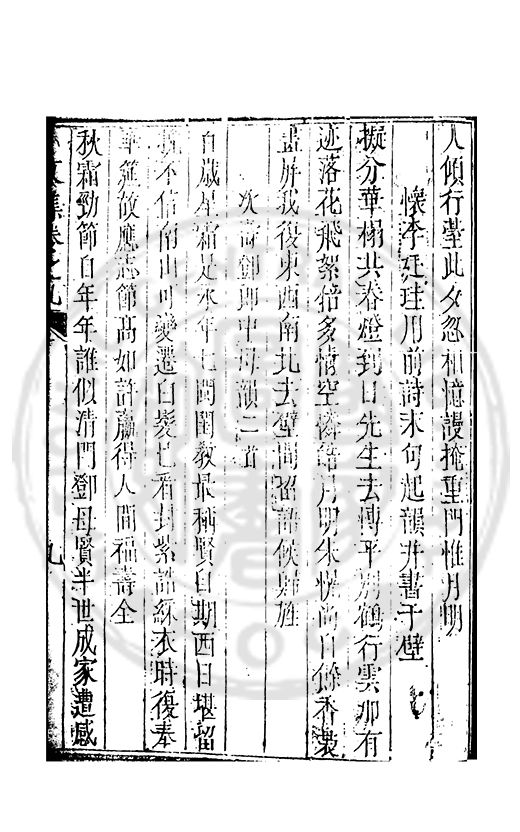 人傾行塗此夕忽相憶謾掩重門惟月明
懷李廷珪用前詩末句起韻并書于壁
擬分華榻共春燈到日先生去慱平別鶴行雲那有
迹落花飛絮倍多情空憐皓月明朱幌尚自餘香裊
畫屏我復東西南北去壁間留語候歸旌
次壽鄧郎中母韻二首
百歲星霜是永年七閩閨敎最稱賢自期西日堪留
不信南山可變遷白髮已看封紫誥綵衣時復奉
華筵故應志節高如許贏得人間福壽全
秋霜勁節自年年誰似清門鄧母賢半世成家遭感
集卷之九
九